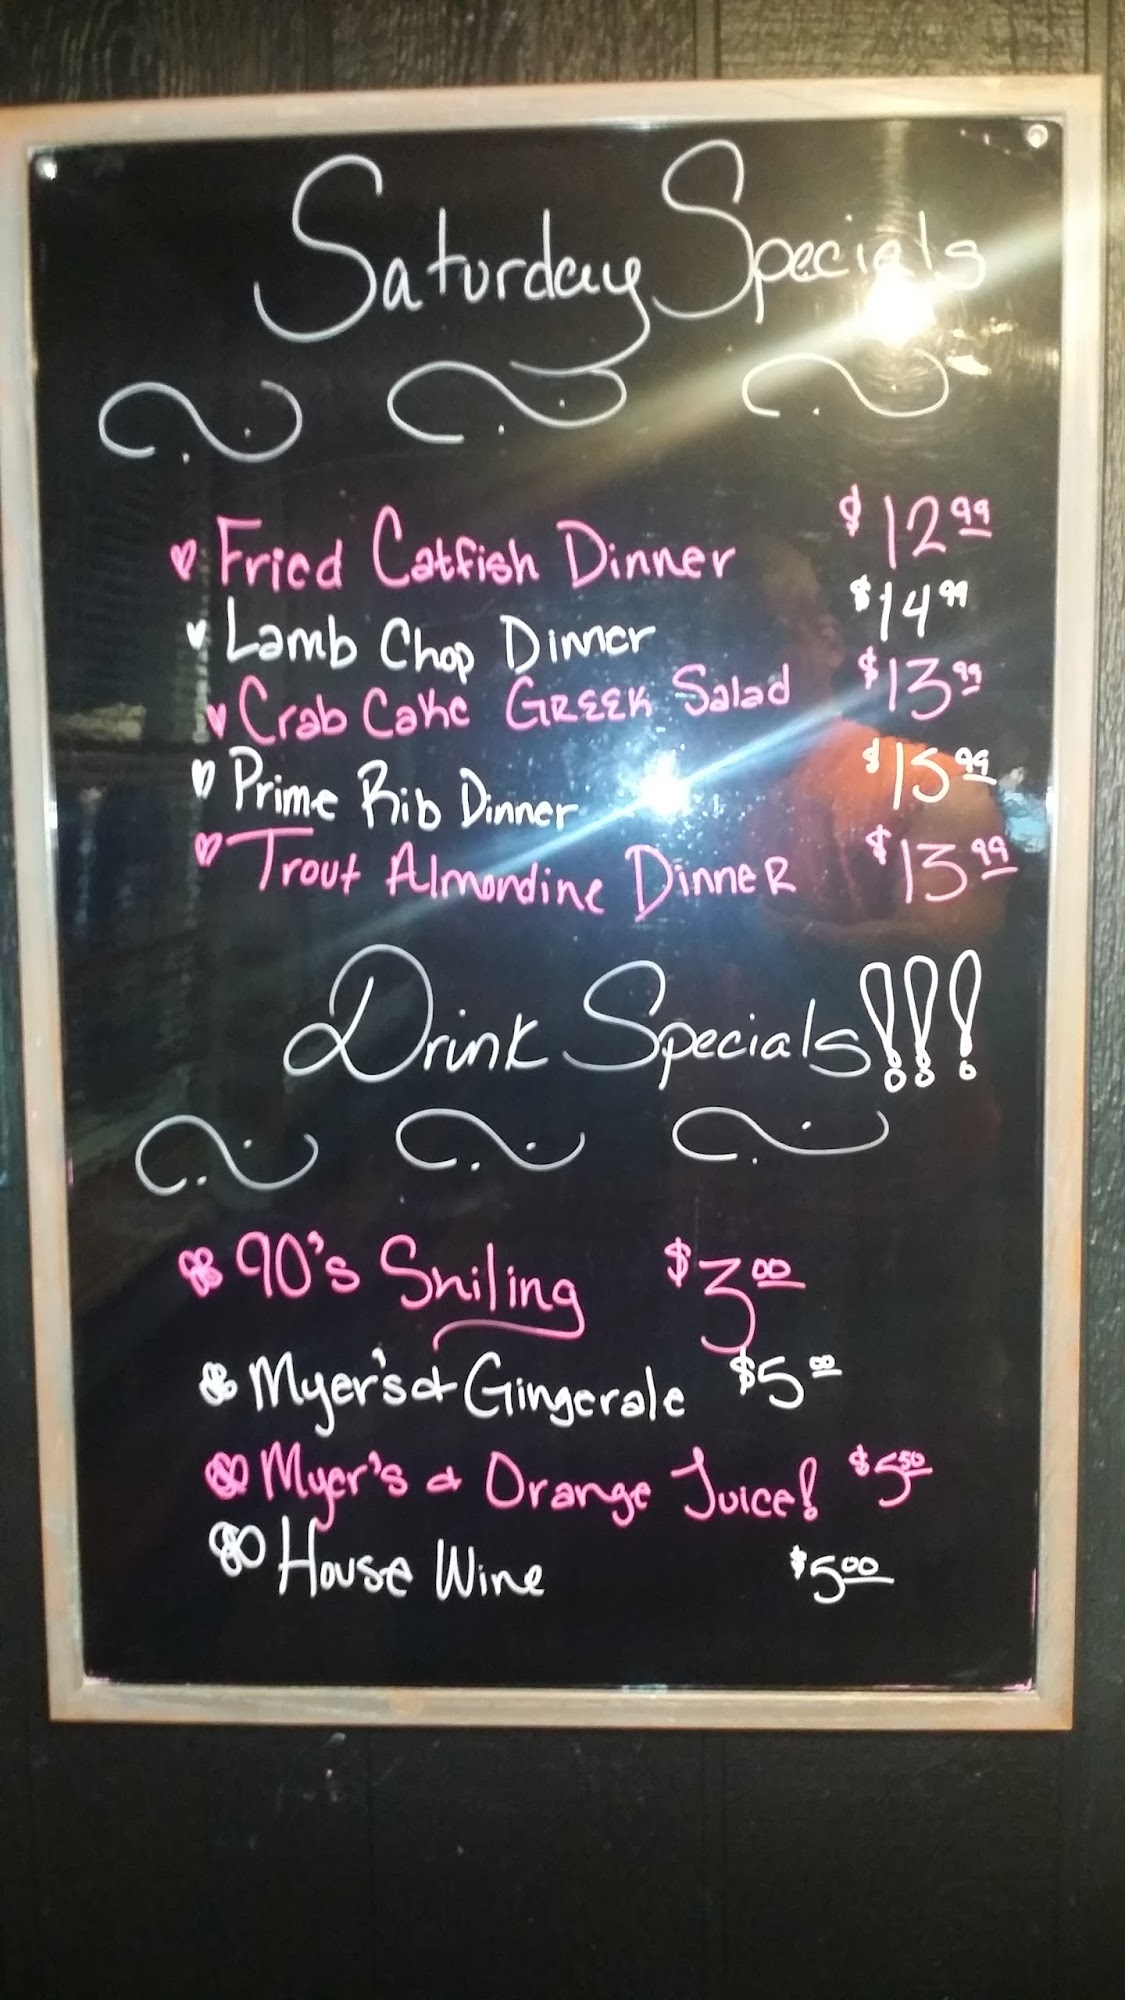 Saturday Specials
Fried Catfish Dinner $12.99
Lamb Chop Dinner $14.99
Crab Cake GREEK Salad $13.99
Prime Rib Dinner $15.99
Trout Almondine Dinner $13.99
Drink Specials!!!
90's Smiling $3.00
Myer's & Gingerale $5.00
Myer's & Orange Juice! $5.50
House Wine $5.00